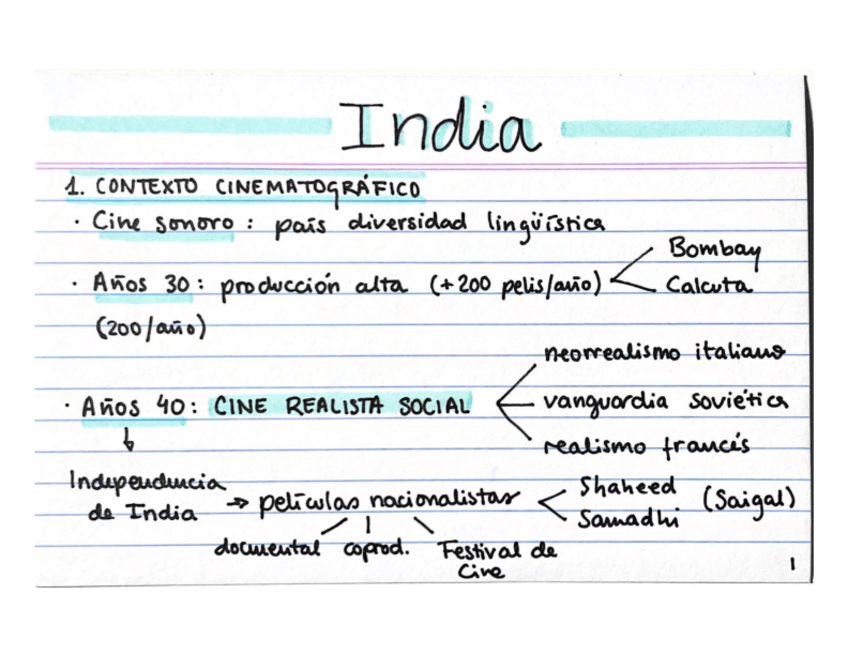 India
1. CONTEXTO CINEMATOGRÁFICO
· Cine sonoro : país diversidad lingüística
· Años 30 : producción alta (+200 pelis/año)
Bombay
Calcuta
(200/año)
· Años 40 : CINE REALISTA SOCIAL
neorrealismo italiano
vanguardia soviética
realismo francés
↓
Independencia
de India
→ películas nacionalistas
Shaheed
Samadhi
(Saigal)
documental coprod. Festival de
Cine
1